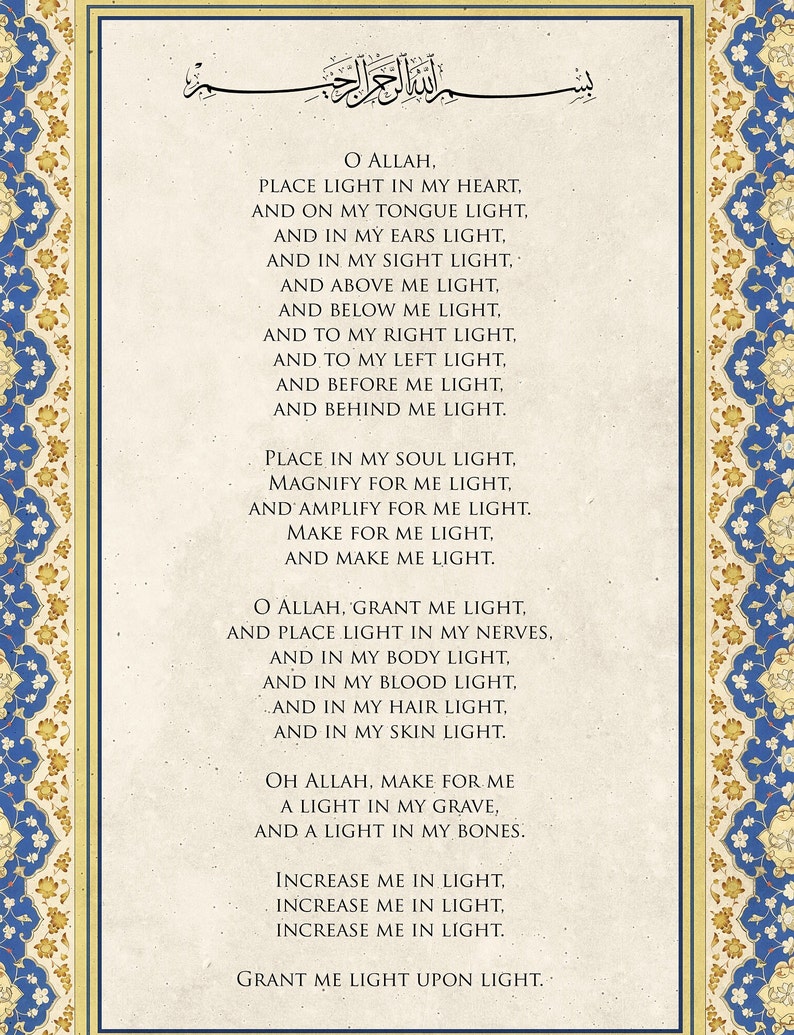 بسم الله الرحمن الرحيم
O Allah,
place light in my heart,
and on my tongue light,
and in my ears light,
and in my sight light,
and above me light,
and below me light,
and to my right light,
and to my left light,
and before me light,
and behind me light.
Place in my soul light,
Magnify for me light,
and amplify for me light.
Make for me light,
and make me light.
O Allah, grant me light,
and place light in my nerves,
and in my body light,
and in my blood light,
and in my hair light,
and in my skin light.
Oh Allah, make for me
a light in my grave,
and a light in my bones.
Increase me in light,
increase me in light,
increase me in light.
Grant me light upon light.